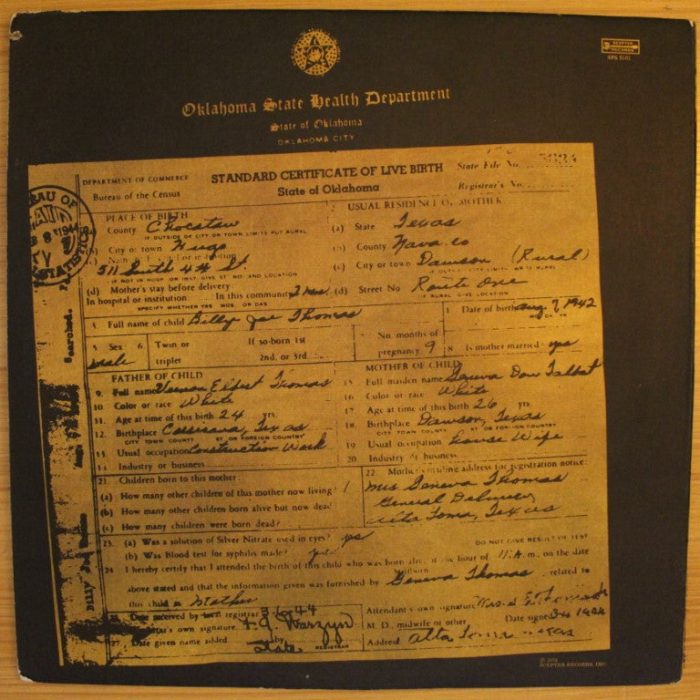 SCEPTER RECORDS
SPS 5101
Oklahoma State Health Department
State of Oklahoma
OKLAHOMA CITY
DEPARTMENT OF COMMERCE
Bureau of the Census
STANDARD CERTIFICATE OF LIVE BIRTH
State of Oklahoma
State File No.
Registrar's No.
PLACE OF BIRTH
(a) County Choctaw
IF OUTSIDE OF CITY OR TOWN LIMITS PUT RURAL
(b) City or town Hugo
511 South 4th St.
IF NOT IN HOSP. OR INST. GIVE ST. NO. AND LOCATION
(d) Mother's stay before delivery:
In hospital or institution In this community
SPECIFY WHETHER YRS. MOS. OR DAYS
USUAL RESIDENCE OF MOTHER
(a) State Texas
(b) County Navaro
(c) City or town Dawson (Rural)
(d) Street No Route One
IF RURAL GIVE LOCATION
Full name of child Billy Joe Thomas
Date of birth Aug. 7, 1942
5 Sex male
6 Twin or triplet
If so-born 1st 2nd, or 3rd.
No. months of pregnancy 9
8 Is mother married yes
FATHER OF CHILD
9. Full name Vernon Thomas
10 Color or race White
11. Age at time of this birth 24 yrs.
12 Birthplace Corsicana, Texas
CITY TOWN COUNTY ST OR FOREIGN COUNTRY
13. Usual occupation Construction Work
14 Industry or business
MOTHER OF CHILD
15 Full maiden name Geneva Talbot
16 Color or race White
17 Age at time of this birth 26 yrs.
18. Birthplace Dawson, Texas
CITY TOWN COUNTY ST OR FOREIGN COUNTRY
19 Usual occupation House Wife
20. Industry or business
21. Children born to this mother
(a) How many other children of this mother now living?
(b) How many other children born alive but now dead?
(c) How many children were born dead?
22. Mother's mailing address for registration notice:
Mrs Geneva Thomas
General Delivery
Alta Loma, Texas
23. (a) Was a solution of Silver Nitrate used in eyes? yes
DO NOT GIVE RESULT OF TEST
(b) Was Blood test for syphilis made? yes
24 I hereby certify that I attended the birth of this child who was born alive at the hour of 11 A.m., on the date
above stated and that the information given was furnished by Geneva Thomas related to
this child as Mother
Date received by local registrar
Registrar's own signature
REGISTRAR
Date given name added by State
Attendant's own signature
M. D., midwife or other Midwife
Date signed
Address Alta Loma Texas
BUREAU OF
1944
STATISTICS
Searched.
SCEPTER RECORDS, INC.